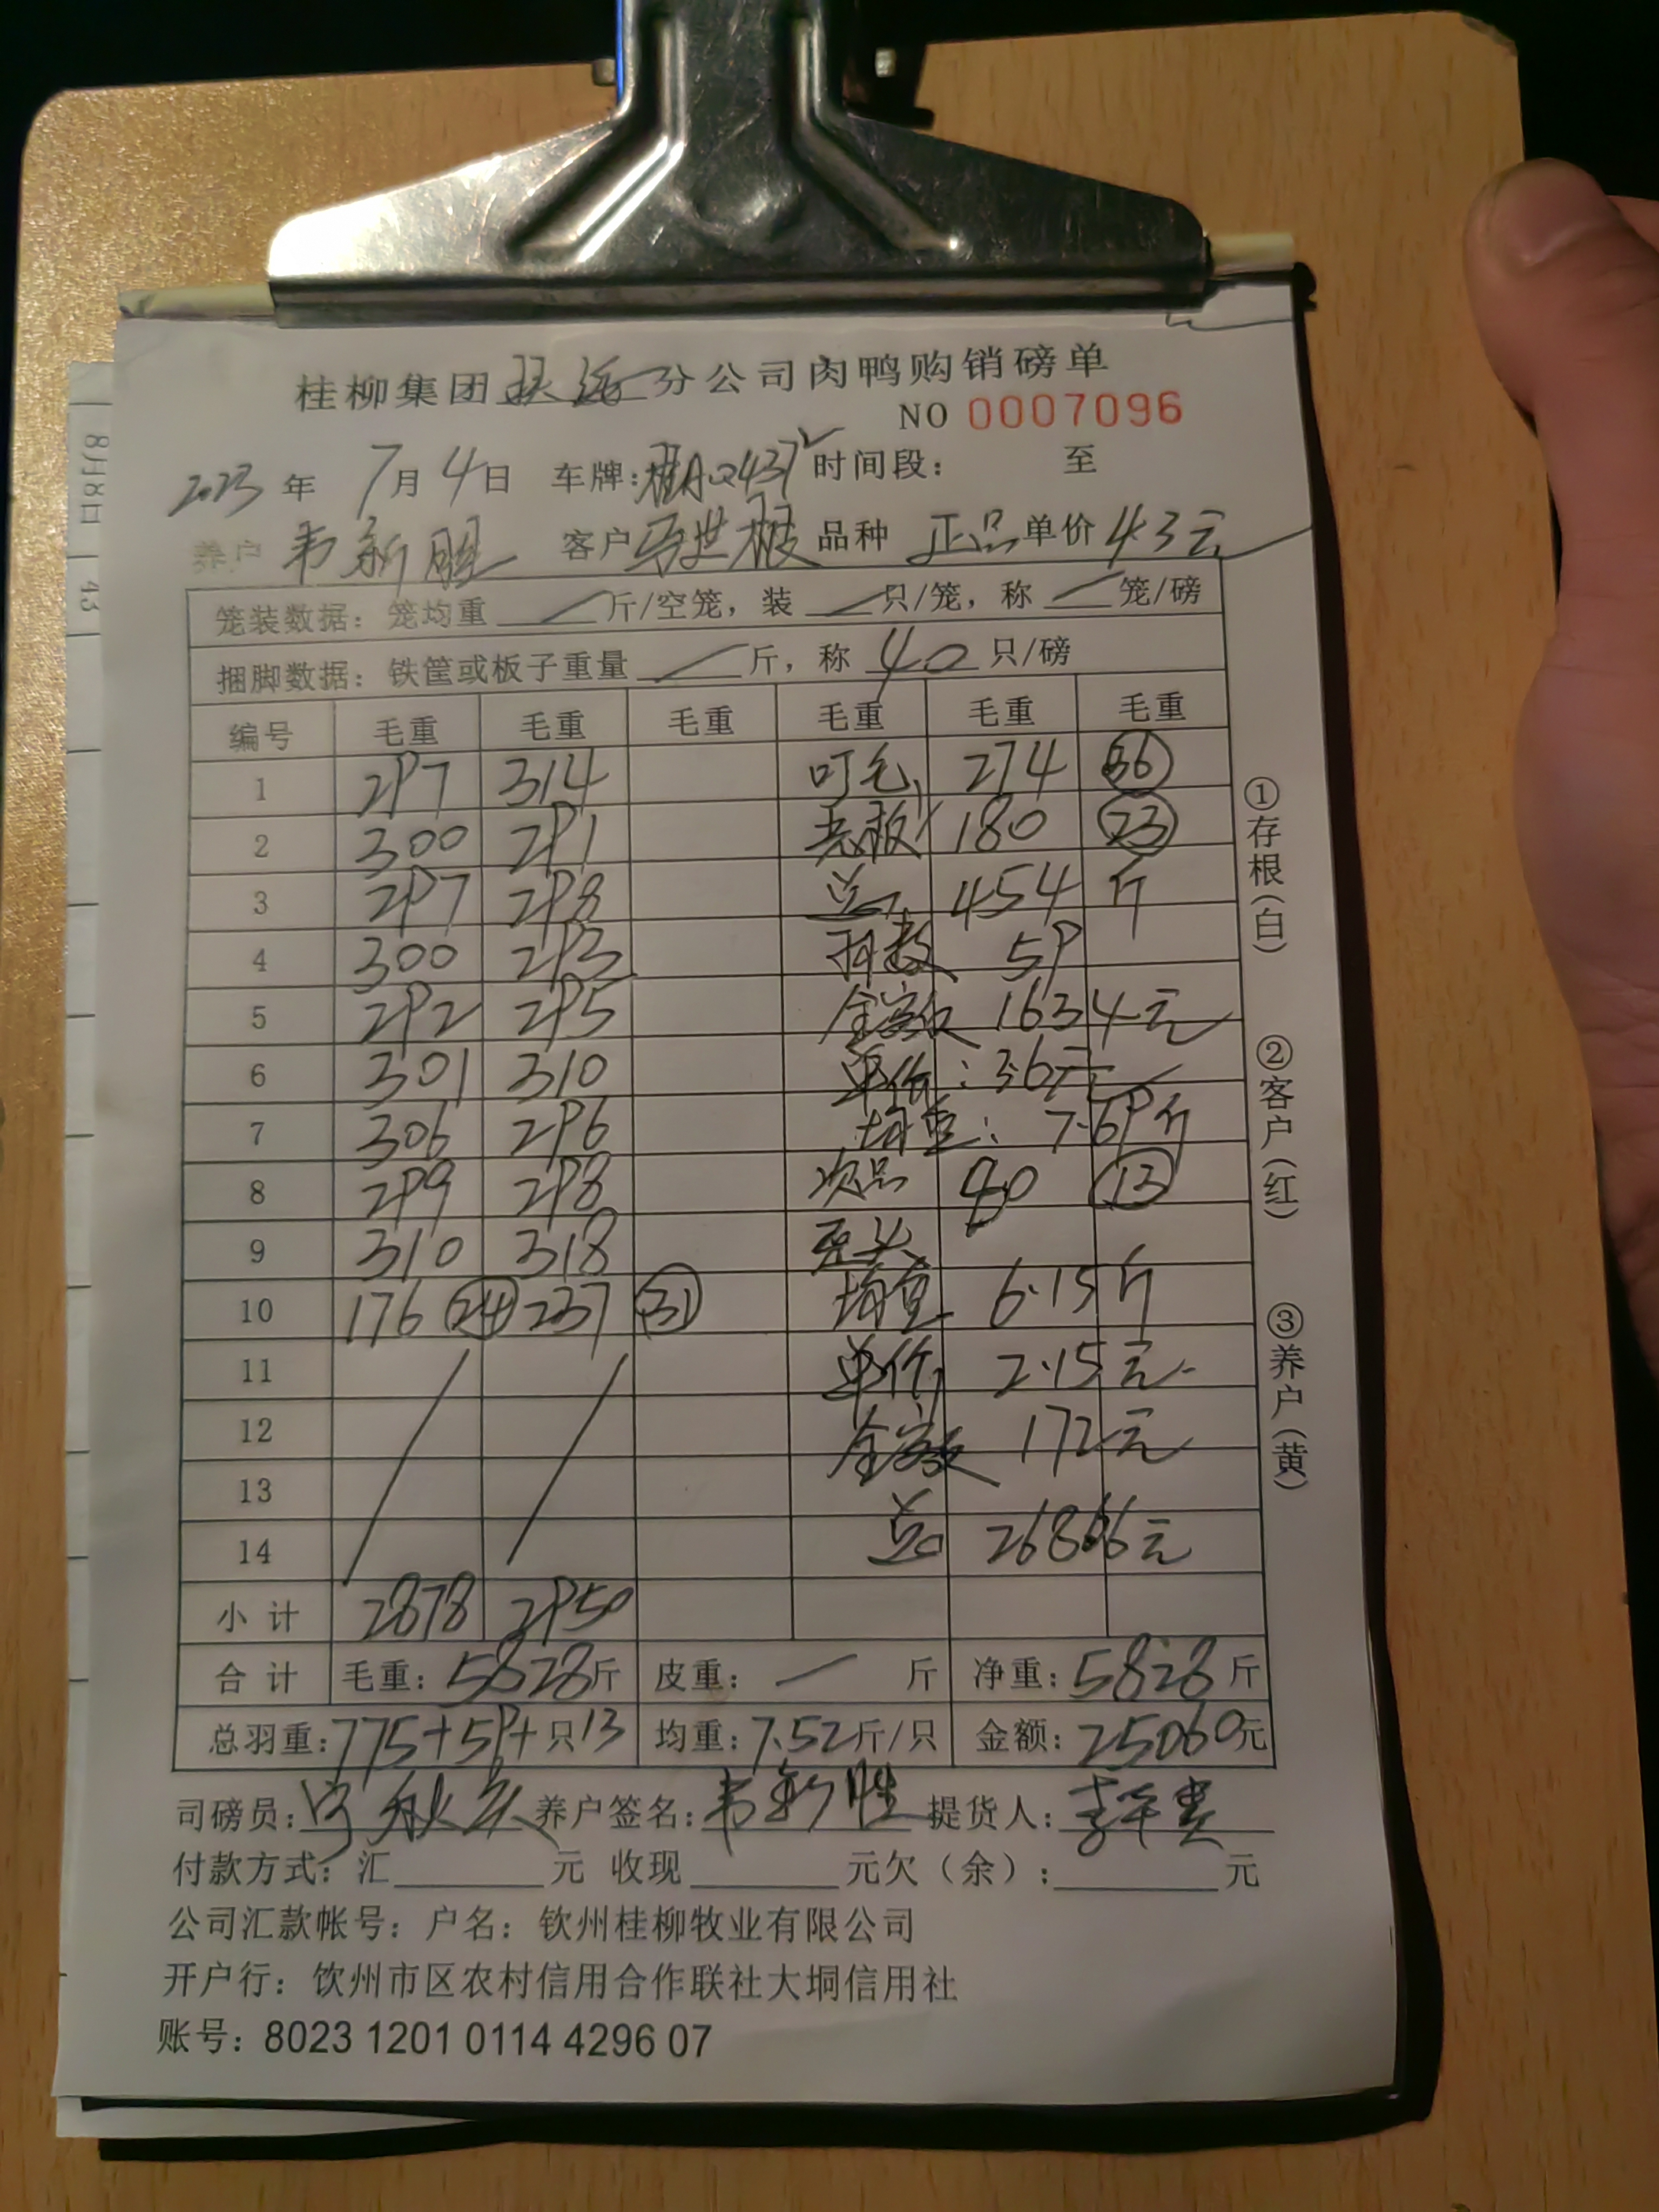 桂柳集团 分公司肉鸭购销磅单
NO 0007096
2023 年 7月 4日 车牌:桂A0437 时间段: 至
养户 韦新胜 客户 品种 正品 单价 4.3元
笼装数据: 笼均重 斤/空笼, 装 只/笼, 称 笼/磅
捆脚数据: 铁筐或板子重量 斤, 称 40 只/磅
编号 毛重 毛重 毛重 毛重 毛重 毛重
1 297 314 叮毛 274 36
2 300 291 180 23
3 297 298 总 454 斤
4 300 293 只数 59
5 292 295 金额 1634元
6 301 310 单价: 3.6元
7 306 296 均重: 7.69斤
8 299 298 次品 80 13
9 310 318
10 176 24 237 31 均重 6.15斤
11 单价 2.15元
12 金额 172元
13
14 总 26866元
小计 2878 2950
合计 毛重: 5828斤 皮重: 斤 净重: 5828斤
总羽重: 775+59+只13 均重: 7.52斤/只 金额: 25060元
司磅员: 养户签名: 韦新胜 提货人:
付款方式: 汇 元 收现 元欠(余): 元
公司汇款帐号: 户名: 钦州桂柳牧业有限公司
开户行: 饮州市区农村信用合作联社大垌信用社
账号: 8023 1201 0114 4296 07
①存根(白)
②客户(红)
③养户(黄)
8月8日
43